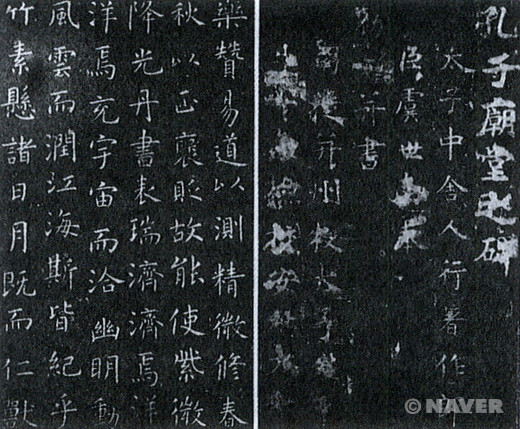 孔子廟堂之碑
太子中舍人行著作郎
臣虞世南
勅 并書
并州牧太子
安北大
樂贊易道以測精微修春
秋以正襃貶故能使紫微
降光丹書表瑞濟濟焉洋
洋焉充宇宙而洽幽明動
風雲而潤江海斯皆紀乎
竹素懸諸日月既而仁獸
© NAVER